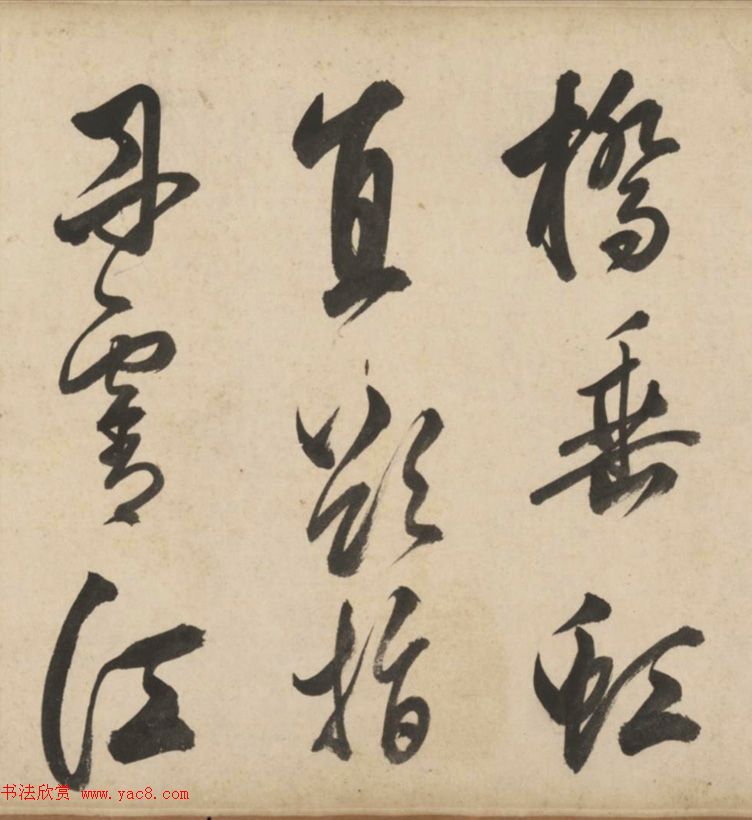 橋垂虹
直欲指
丹霄江
书法欣赏 www.yac8.com